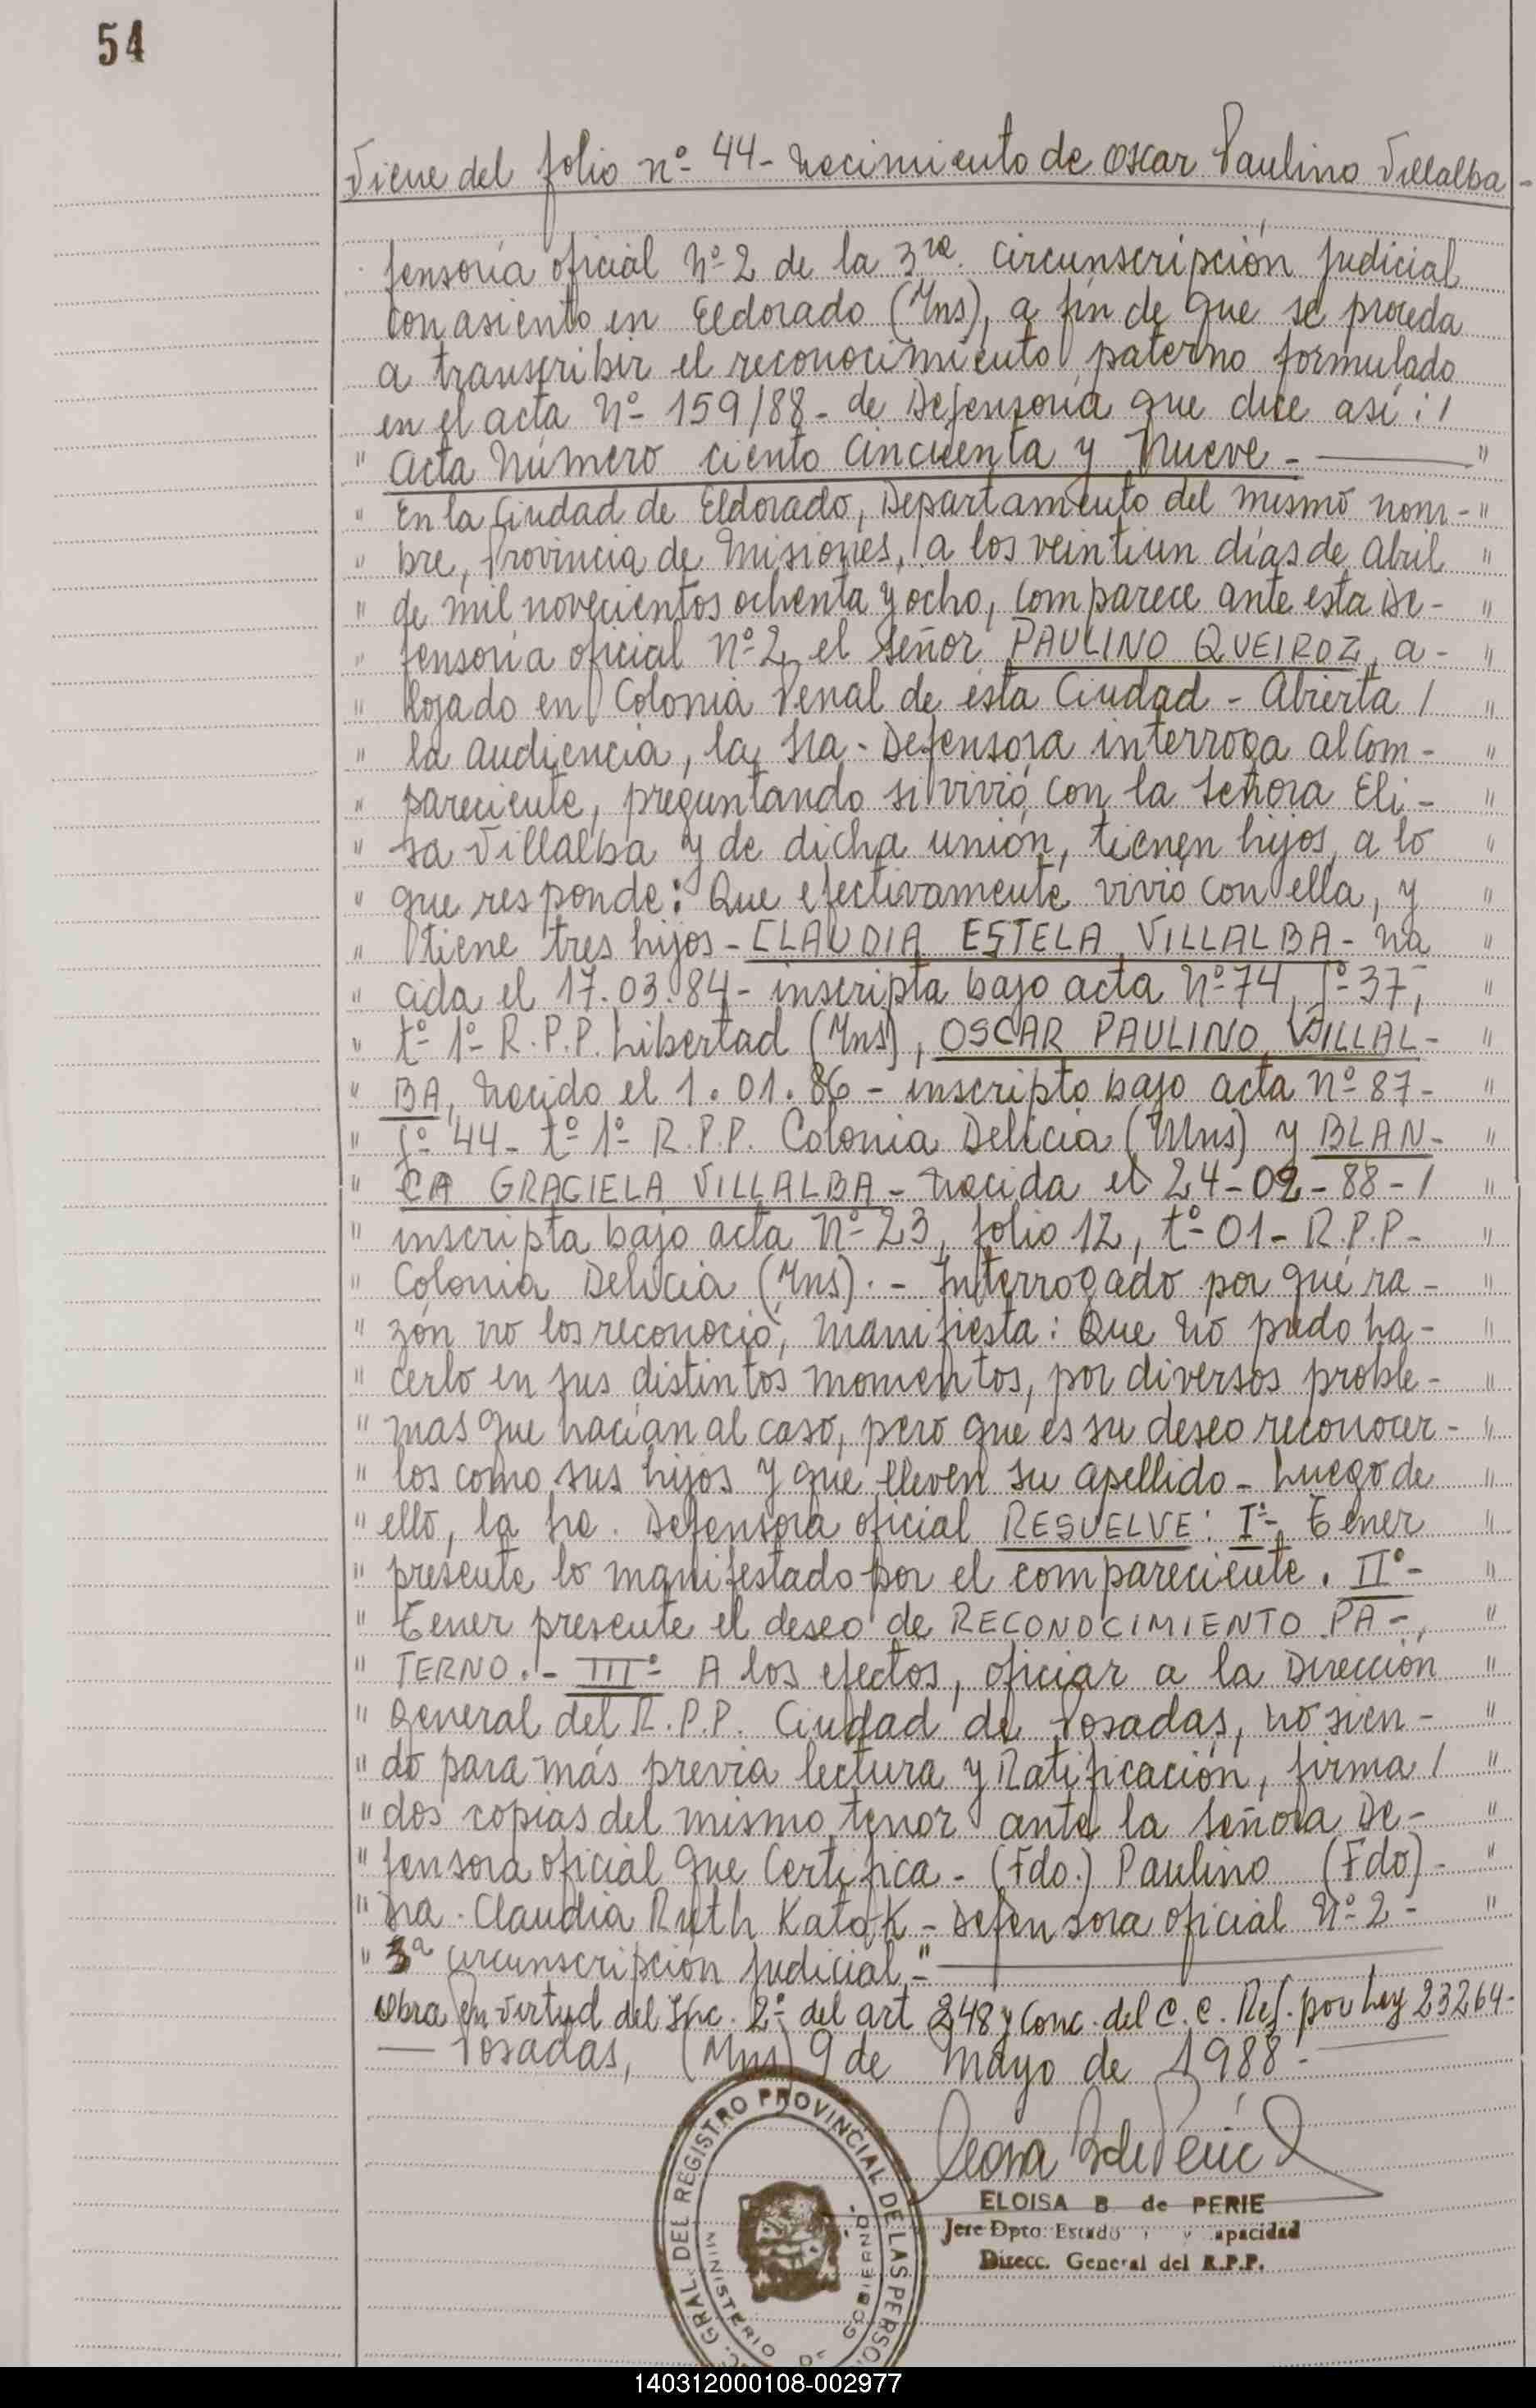 54
Viene del folio nº 44 - Nacimiento de Oscar Paulino Villalba -
fensoría oficial Nº 2 de la 3ra. Circunscripción Judicial
con asiento en Eldorado (Mns), a fin de que se proceda
a transcribir el reconocimiento paterno formulado
en el acta Nº 159/88 - de Defensoría que dice así: /
" Acta Número ciento cincuenta y Nueve - "
" En la Ciudad de Eldorado, Departamento del mismo nom- "
" bre, Provincia de Misiones, a los veintiun días de Abril "
" de mil novecientos ochenta y ocho, comparece ante esta De- "
" fensoría oficial Nº 2 el señor PAULINO QUEIROZ, a- "
" lojado en Colonia Penal de ésta Ciudad - Abierta / "
" la audiencia, la Sra - Defensora interroga al Com- "
" pareciente, preguntando si vivió con la señora Eli- "
" sa Villalba y de dicha unión, tienen hijos, a lo "
" que responde: Que efectivamente vivió con ella, y "
" tiene tres hijos - CLAUDIA ESTELA VILLALBA - na "
" cida el 17.03.84 - inscripta bajo acta Nº 74, fº 37, "
" tº 1º R.P.P. Libertad (Mns), OSCAR PAULINO VILLAL- "
" BA, nacido el 1.01.86 - inscripto bajo acta Nº 87 - "
" fº 44 - tº 1º R.P.P. Colonia Delicia (Mns) y BLAN- "
" CA GRACIELA VILLALBA - nacida el 24-02-88 - / "
" inscripta bajo acta Nº 23, folio 12, tº 01 - R.P.P - "
" Colonia Delicia (Mns). - Interrogado por qué ra- "
" zón no los reconoció, manifiesta: Que no pudo ha- "
" cerlo en sus distintos momentos, por diversos proble- "
" mas que hacían al caso, pero que es su deseo reconocer- "
" los como sus hijos y que lleven su apellido - Luego de "
" ello, la Sra. Defensora oficial RESUELVE: Iº - Tener "
" presente lo manifestado por el compareciente. IIº - "
" Tener presente el deseo de RECONOCIMIENTO PA- "
" TERNO. - IIIº - A los efectos, oficiar a la Dirección "
" General del R.P.P. Ciudad de Posadas, no sien- "
" do para más previa lectura y Ratificación, firma / "
" dos copias del mismo tenor ante la señora De- "
" fensora oficial que Certifica - (Fdo.) Paulino (Fdo) - "
" Dra. Claudia Ruth Katok - Defensora oficial Nº 2 - "
" 3ª circunscripción Judicial - "
Obra en virtud del Inc. 2º del art 248 y Conc. del C. C. Ref. por Ley 23264 -
Posadas, (Mns) 9 de Mayo de 1988 -
GRAL. DEL REGISTRO PROVINCIAL DE LAS PERSO
MINISTERIO DE GOBIERNO
ELOISA B de PERIE
Jefe Dpto. Estado y apacidad
Direcc. General del R.P.P.
140312000108-002977